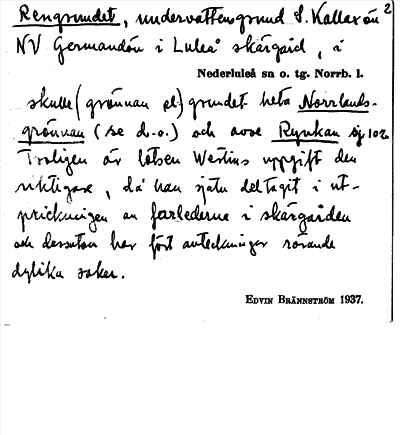 Rengrundet, undervattensgrund S. Kallaxön 2
NV Germandön i Luleå skärgård, å
Nederluleå sn o. tg. Norrb. l.
skulle (grönnan el.) grundet heta Norrlands-
grönnan (se d.o.) och avse Rynkan sjö 102
Troligen är lotsen Westins uppgift den
riktigare, då han själv deltagit i ut-
prickningen av farlederna i skärgården
och dessutom har fört anteckningar rörande
dylika saker.
EDVIN BRÄNNSTRÖM 1937.